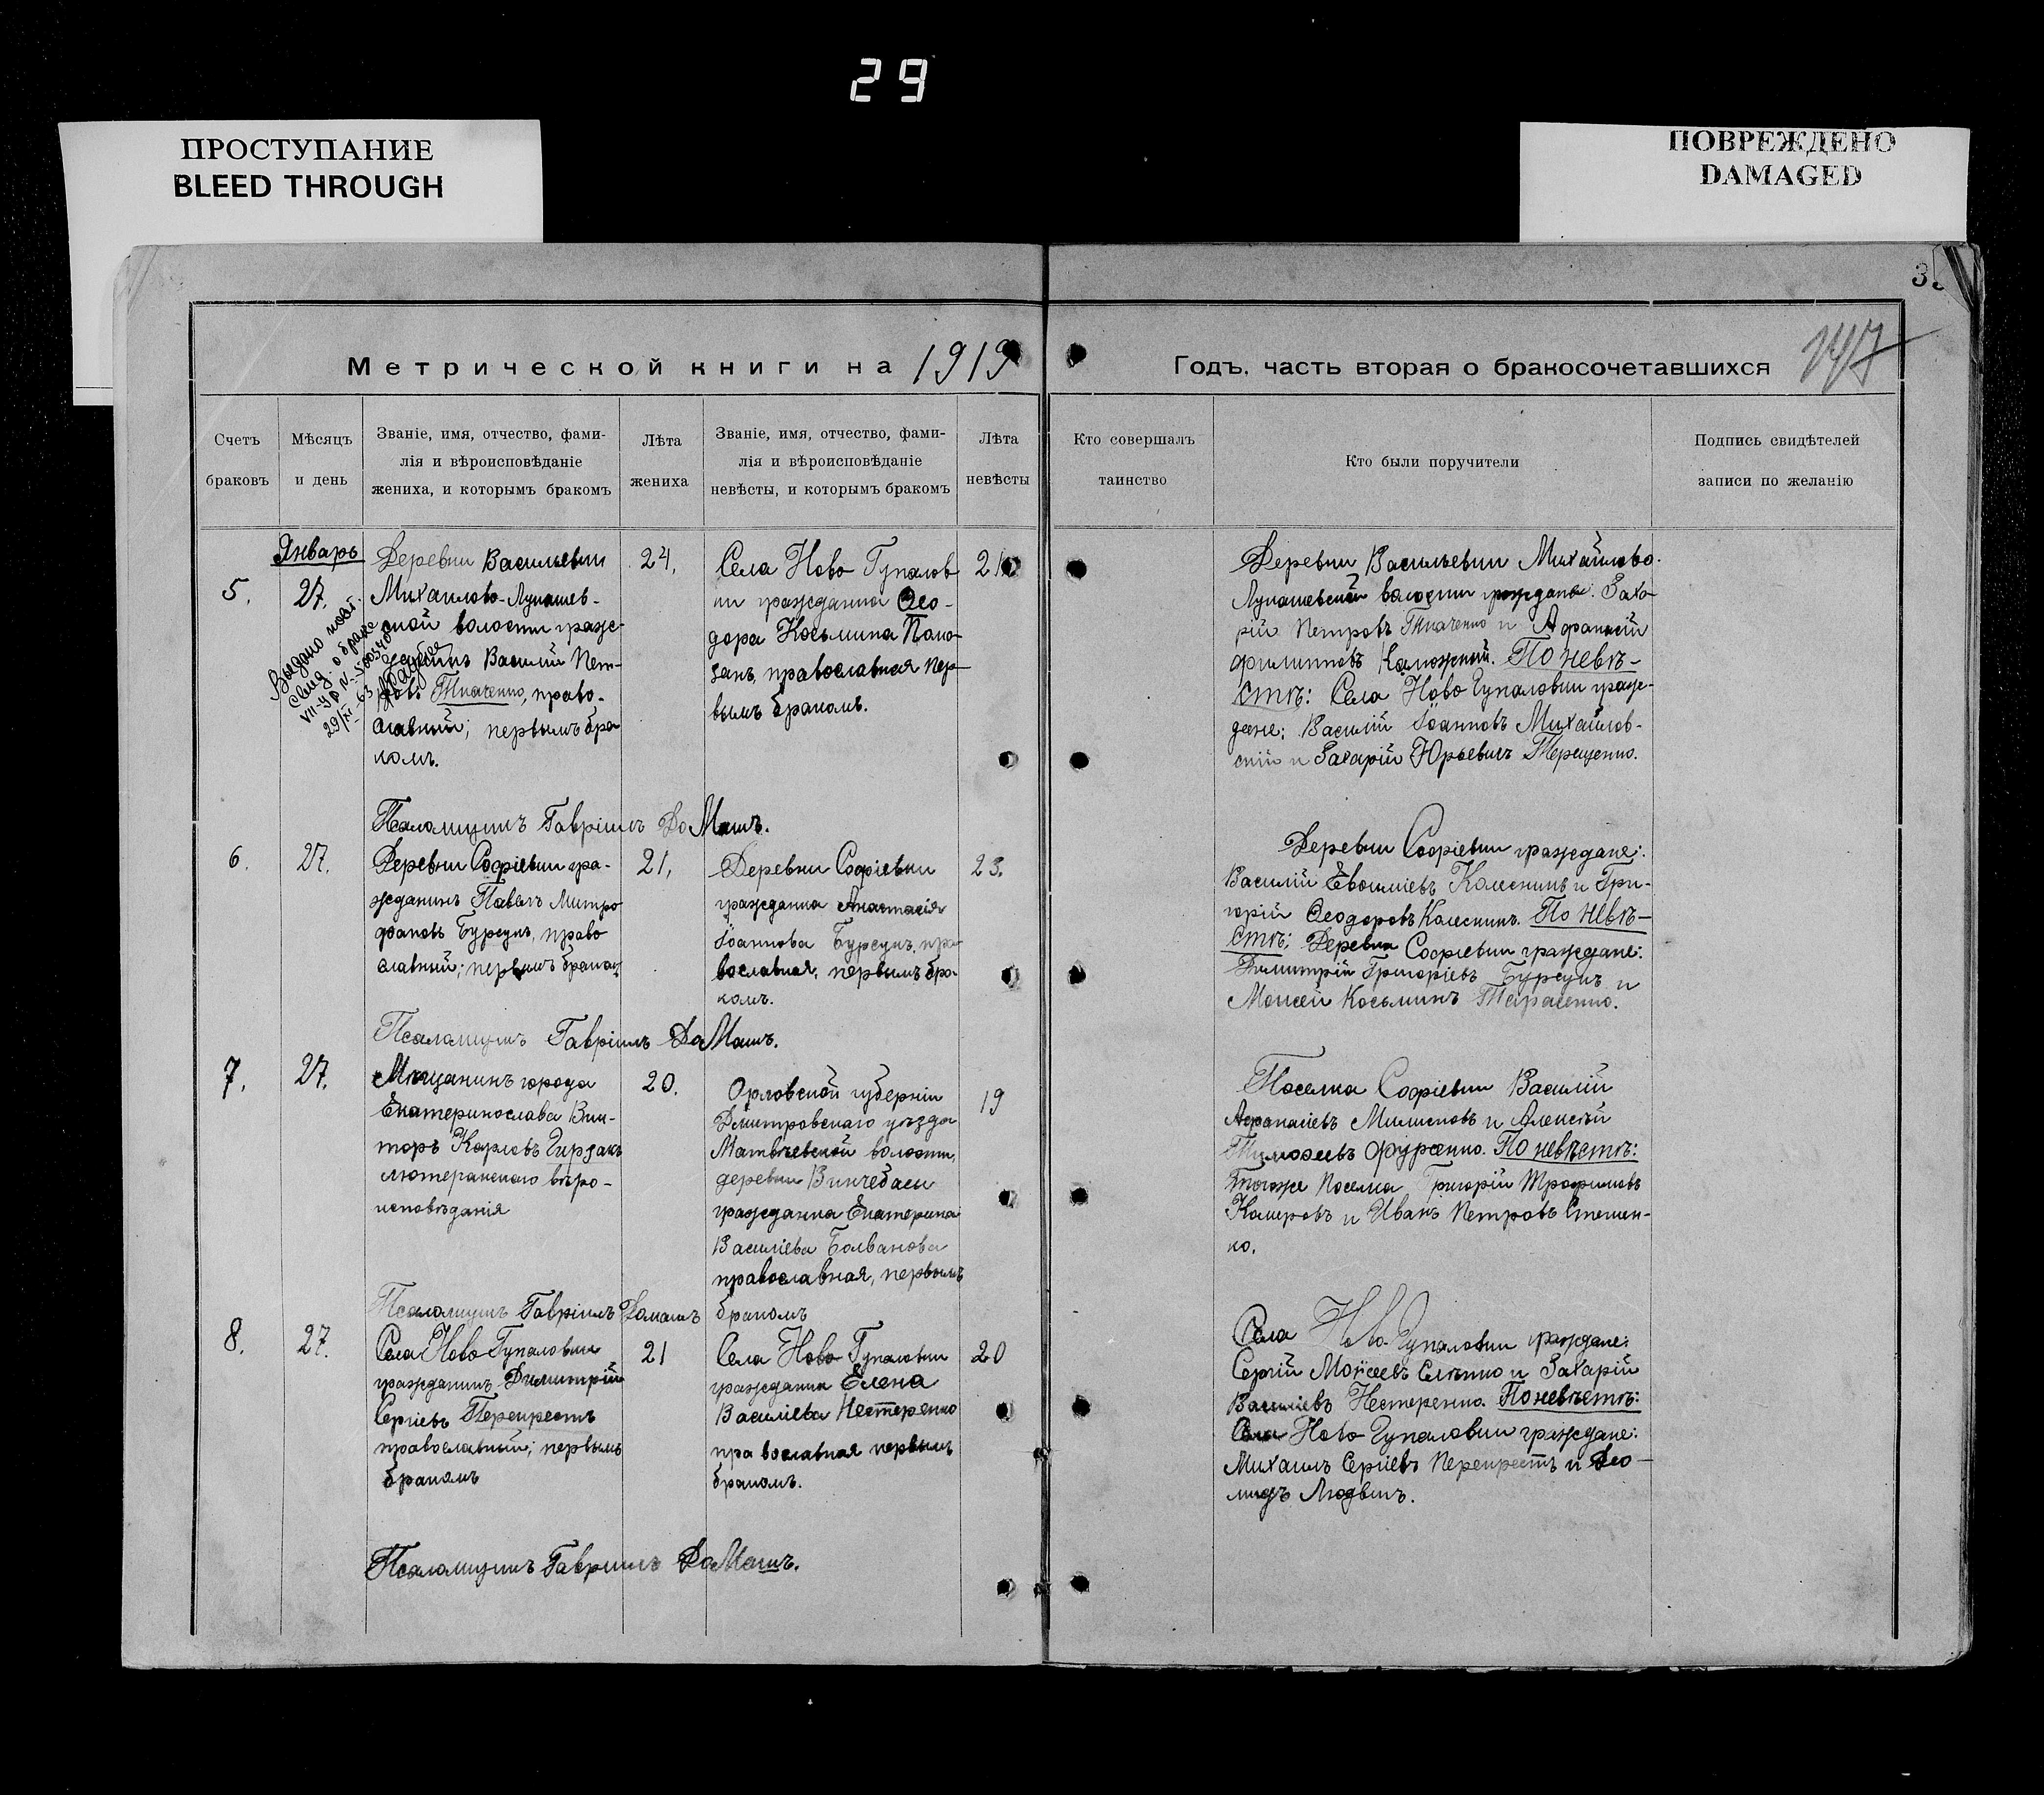 29
ПРОСТУПАНИЕ
BLEED THROUGH
ПОВРЕЖДЕНО
DAMAGED
Метрической книги на 1919
Годъ, часть вторая о бракосочетавшихся
147
Счетъ браковъ
Мѣсяцъ и день
Званіе, имя, отчество, фами-
лія и вѣроисповѣданіе
жениха, и которымъ бракомъ
Лѣта жениха
Званіе, имя, отчество, фами-
лія и вѣроисповѣданіе
невѣсты, и которымъ бракомъ
Лѣта невѣсты
Кто совершалъ таинство
Кто были поручители
Подпись свидѣтелей
записи по желанію
Январь
5.
27.
Выдано повт.
свид. о браке
VII-УР №
29/XI-63
Деревни Васильевки
Михайлово-Лукашев-
ской волости граж-
данинъ Василій Пет-
ровъ Ткаченко, право-
славный; первымъ бра
комъ.
24.
Села Ново Гупалов
ки гражданка Ѳео-
дора Косьмина
православная пер-
вымъ бракомъ.
Деревни Васильевки Михайлово-
Лукашевской волости граждане: Заха-
рій Петровъ Ткаченко и Афанасій
Филипповъ Калюжный. По невѣ-
стѣ: Села Ново Гупаловки граж-
дане: Василій Іоанновъ Михайлов-
скій и Захарій Юрьевичъ Терещенко.
Псаломщикъ Гавріилъ ДоМашъ.
6.
27.
Деревни Софіевки гра-
жданинъ Павелъ Митро
фановъ Бурсукъ, право
славный; первымъ бракомъ
21.
Деревни Софіевки
гражданка Анастасія
Іоаннова Бурсукъ, пра
вославная, первымъ бра-
комъ.
23.
Деревни Софіевки граждане:
Василій Евѳиміевъ Колесникъ и Гри-
горій Ѳеодоровъ Колесникъ. По невѣ-
стѣ: Деревни Софіевки граждане:
Димитрій Григоріевъ Бурсукъ и
Моисей Косьминъ Тарасенко.
Псаломщикъ Гавріилъ ДаМашъ.
7.
27.
Мѣщанинъ города
Екатеринослава Вик-
торъ Карловъ Гирзакъ
лютеранскаго вѣро-
исповѣданія
20.
Орловской губерніи
Дмитровскаго уѣзда
Матвѣевской волости,
деревни
гражданка Екатерина
Василіева Болванова
православная, первымъ
бракомъ
19
Поселка Софіевки Василій
Афанасіевъ Милшковъ и Алексѣй
Тимоѳеевъ Фурсенко. По невѣстѣ:
Тогоже поселка Григорій Трофимовъ
и Иванъ Петровъ Стешен-
ко.
Псаломщикъ Гавріилъ Домашъ
8.
27.
Села Ново Гупаловки
гражданинъ Димитрій
Сергіевъ Перекрестъ
православный; первымъ
бракомъ
21
Села Ново Гупаловки
гражданка Елена
Василіева Нестеренко
православная первымъ
бракомъ.
20
Села Ново-Гупаловки граждане:
Сергій Моисеевъ и Захарій
Василіевъ Нестеренко. По невѣстѣ:
Села Ново Гупаловки граждане:
Михаилъ Сергіевъ Перекрестъ и Лео-
нидъ Людвикъ.
Псаломщикъ Гавріилъ ДаМашъ.